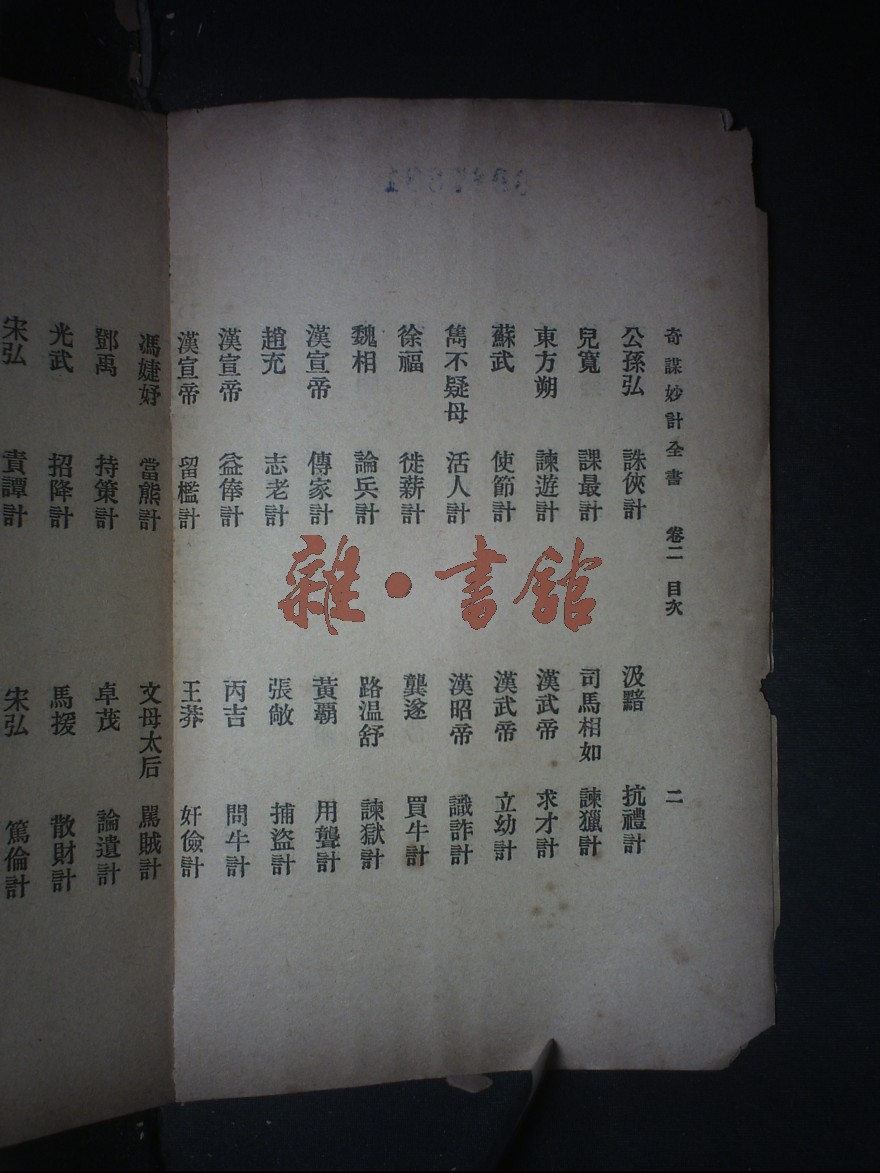 奇謀妙計全書 卷二 目次 二
公孫弘 誅俠計 汲黯 抗禮計
兒寬 課最計 司馬相如 諫獵計
東方朔 諫遊計 漢武帝 求才計
蘇武 使節計 漢武帝 立幼計
雋不疑母 活人計 漢昭帝 識詐計
徐福 徙薪計 龔遂 買牛計
魏相 論兵計 路温舒 諫獄計
漢宣帝 傳家計 黃霸 用聾計
趙充 志老計 張敞 捕盜計
漢宣帝 益俸計 丙吉 問牛計
漢宣帝 留檻計 王莽 奸儉計
馮婕妤 當熊計 文母太后 罵賊計
鄧禹 持策計 卓茂 論遺計
光武 招降計 馬援 散財計
宋弘 責譚計 宋弘 篤倫計
雜·書館